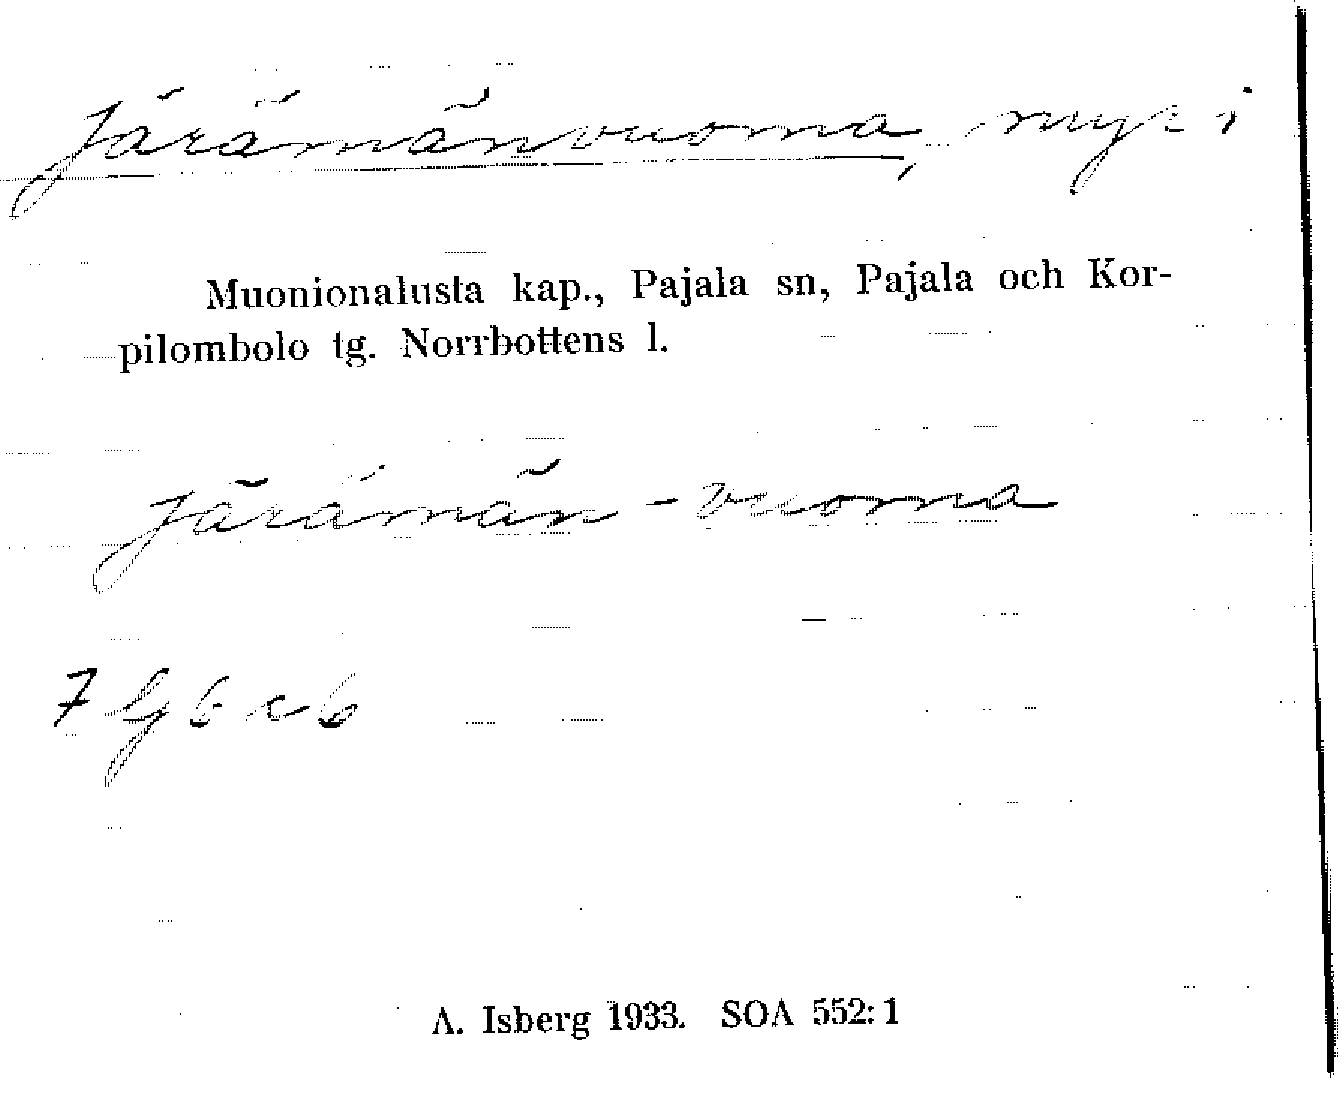 Järämänvuoma, myr i
Muonionalusta kap., Pajala sn, Pajala och Kor-
pilombolo tg. Norrbottens l.
järämän - vuoma
7 G 6 c 6
A. Isberg 1933. SOA 552:1